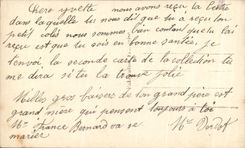 Chere yvette nous avons reçu ta lettre
dans laquelle tu nous dit que tu a reçu ton
petit colis nous sommes bien contant que tu l'ai
reçu est que tu sois en bonne santée, je
t'envoi la seconde carte de la collection tu
me dira si tu la trouve jolie
Milles gros baisers de ton grand père est
grand mère qui pensent toujours à toi
Mlle France Bernard va se
marier